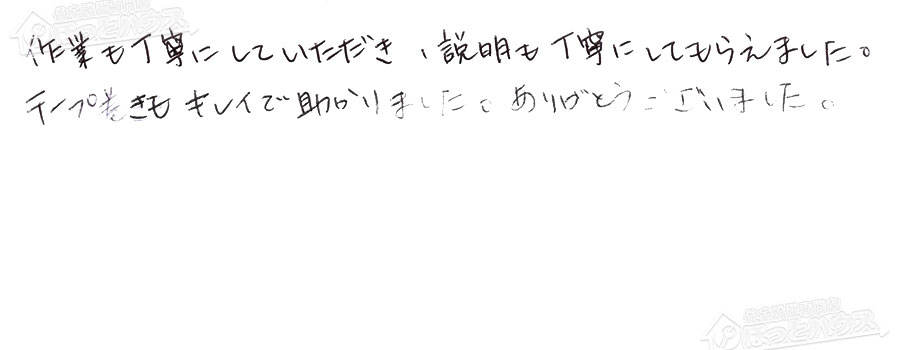 住宅設備専門店
ほっとハウス
作業も丁寧にしていただき、説明も丁寧にしてもらえました。
テープ巻きもキレイで助かりました。ありがとうございました。
住宅設備専門店
ほっとハウス